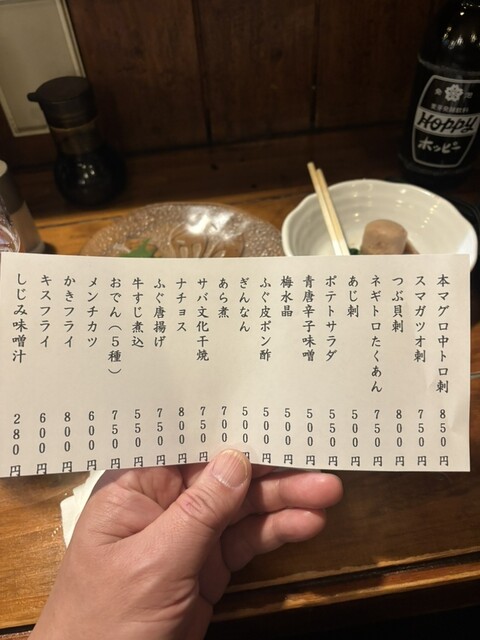 本マグロ中トロ刺 850円
スマガツオ刺 700円
つぶ貝刺 800円
ネギトロたくあん 750円
あじ刺 500円
ポテトサラダ 550円
青唐辛子味噌 500円
梅水晶 500円
ふぐ皮ポン酢 500円
ぎんなん 500円
あら煮 700円
サバ文化干焼 750円
ナチョス 800円
ふぐ唐揚げ 750円
牛すじ煮込 550円
おでん（5種） 750円
メンチカツ 600円
かきフライ 800円
キスフライ 600円
しじみ味噌汁 280円
HOPPY
ホッピー